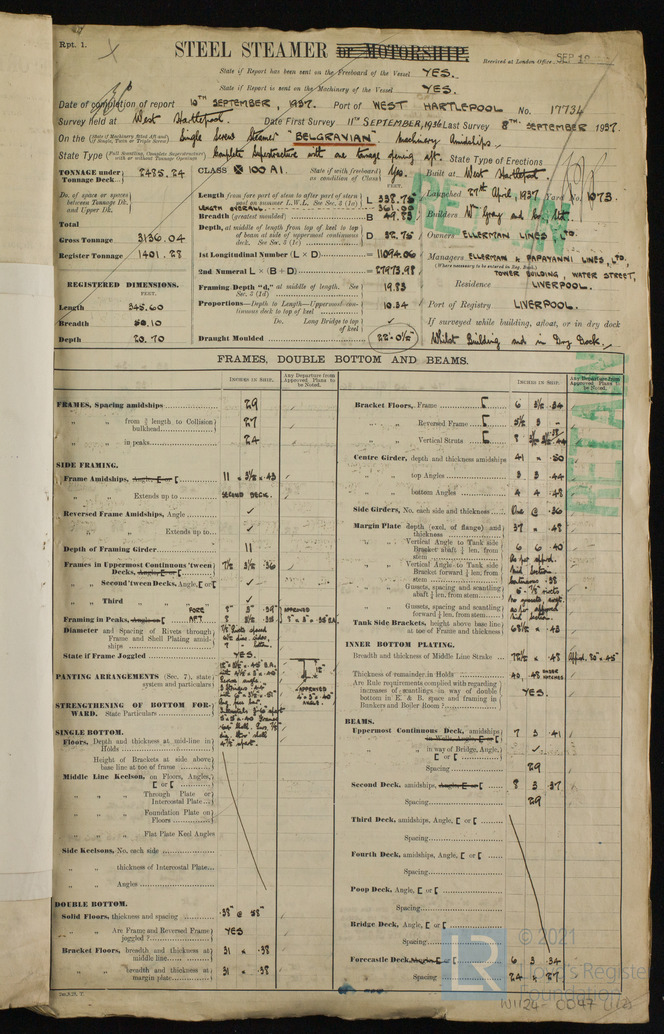 Rpt. 1.
STEEL STEAMER or MOTORSHIP.
Received at London Office SEP 10
State if Report has been sent on the Freeboard of the Vessel YES.
State if Report is sent on the Machinery of the Vessel YES.
Date of completion of report 10TH SEPTEMBER, 1937. Port of WEST HARTLEPOOL No. 17734
Survey held at West Hartlepool. Date First Survey 11TH SEPTEMBER, 1936 Last Survey 8TH SEPTEMBER 1937.
On the (State if Machinery fitted Aft and if Single, Twin or Triple Screw) Single Screw Steamer "BELGRAVIAN" Machinery Amidships.
State Type (Full Scantling, Complete Superstructure with or without Tonnage Opening) Complete Superstructure with one tonnage opening aft. State Type of Erections
TONNAGE under Tonnage Deck 2485.24
Do. of space or spaces between Tonnage Dk. and Upper Dk.
Total
Gross Tonnage 3136.04
Register Tonnage 1401.28
REGISTERED DIMENSIONS.
FEET.
Length 345.60
Breadth 50.10
Depth 20.70
CLASS ✠ 100 A1. State if with freeboard as condition of Class Yes.
FEET.
Length from fore part of stem to after part of stern post on summer L.W.L. See Sec. 3 (1a) L 338.75
LENGTH OVERALL 361.00
Breadth (greatest moulded) B 49.83
Depth, at middle of length from top of keel to top of beam at side of uppermost continuous deck. See Sec. 3 (1c) D 32.75
1st Longitudinal Number (L × D) = 11094.06
2nd Numeral L × (B + D) = 27973.98
Framing Depth "d," at middle of length. See Sec. 3 (1d) 19.83
Proportions—Depth to Length—Uppermost continuous deck to top of keel 10.34
Do. Long Bridge to top of keel ✓
Draught Moulded 22'-0½"
Built at West Hartlepool.
Launched 27th April, 1937 Yard No. 1073.
Builders Wm Gray and Co., Ltd.
Owners ELLERMAN LINES LTD
Managers ELLERMAN & PAPAYANNI LINES, LTD.
(Where necessary to be entered in Reg. Book.)
TOWER BUILDING, WATER STREET,
Residence LIVERPOOL.
Port of Registry LIVERPOOL.
If surveyed while building, afloat, or in dry dock
Whilst Building and in Dry Dock.
RETAIN
FRAMES, DOUBLE BOTTOM AND BEAMS.
INCHES IN SHIP.
Any Departure from Approved Plans to be Noted.
FRAMES, Spacing amidships 29
" " from ⅗ length to Collision bulkhead 27
" " in peaks 24
SIDE FRAMING.
Frame Amidships, Angle, [ or [ 11 × 3½ × .43
" " Extends up to SECOND DECK.
Reversed Frame Amidships, Angle ✓
" " Extends up to ✓
Depth of Framing Girder 11
Frames in Uppermost Continuous 'tween Decks, Angle, [ or [ 7½ 3½ .36
" " Second 'tween Decks, Angle, [ or [ ✓
" " Third " ✓
Framing in Peaks, Angle or [ FORE 8" 3 .39"
AFT. 8 3½ .38
APPROVED
Diameter and Spacing of Rivets through Frame and Shell Plating amidships
State if Frame Joggled YES.
PANTING ARRANGEMENTS (Sec. 7), state system and particulars
APPROVED
STRENGTHENING OF BOTTOM FORWARD. State Particulars
SINGLE BOTTOM.
Floors, Depth and thickness at mid-line in Holds
Height of Brackets at side above base line at toe of frame
Middle Line Keelson, on Floors, Angles, [ or [
" " Through Plate or Intercostal Plate
" " Foundation Plate on Floors
" " Flat Plate Keel Angles
Side Keelsons, No. each side
" " thickness of Intercostal Plate
" " Angles
DOUBLE BOTTOM.
Solid Floors, thickness and spacing .38" @ 58"
" Are Frame and Reversed Frame joggled? YES
Bracket Floors, breadth and thickness at middle line 31 × .38
" " breadth and thickness at margin plate 31 × .38
INCHES IN SHIP.
Any Departure from Approved Plans to be Noted.
Bracket Floors, Frame [ 6 3½ .34
" " Reversed Frame [ 5½ 3
" " Vertical Struts [ 8 3½
Centre Girder, depth and thickness amidships 41 × .50
" " top Angles 3 3 .44
" " bottom Angles 4 4 .48
Side Girders, No. each side and thickness One @ .36
Margin Plate depth (excl. of flange) and thickness 37 × .48
" " Vertical Angle to Tank side Bracket abaft ¼ len. from stem 6 6 .40
" " Vertical Angle to Tank side Bracket forward ¼ len. from stem
" " Gussets, spacing and scantling abaft ¼ len. from stem
" " Gussets, spacing and scantling forward ¼ len. from stem
Tank Side Brackets, height above base line at toe of Frame and thickness 68½ × .43
INNER BOTTOM PLATING.
Breadth and thickness of Middle Line Strake 72½ × .48
Thickness of remainder in Holds .40, .48 UNDER HATCHES
Are Rule requirements complied with regarding increases of scantlings in way of double bottom in E. & B. space and framing in Bunkers and Boiler Room? YES.
BEAMS.
Uppermost Continuous Deck, amidships in Wells, Angle, [ or [ 7 3 .41
" " in way of Bridge, Angle, [ or [ ✓
Spacing 29
Second Deck, amidships, Angle, [ or [ 8 3 .37
Spacing 29
Third Deck, amidships, Angle, [ or [
Spacing
Fourth Deck, amidships, Angle, [ or [
Spacing
Poop Deck, Angle, [ or [
Spacing
Bridge Deck, Angle, [ or [
Spacing
Forecastle Deck, Angle, [ or [ 6 3 .34
Spacing 24 & 27
© 2021
Lloyd's Register
Foundation